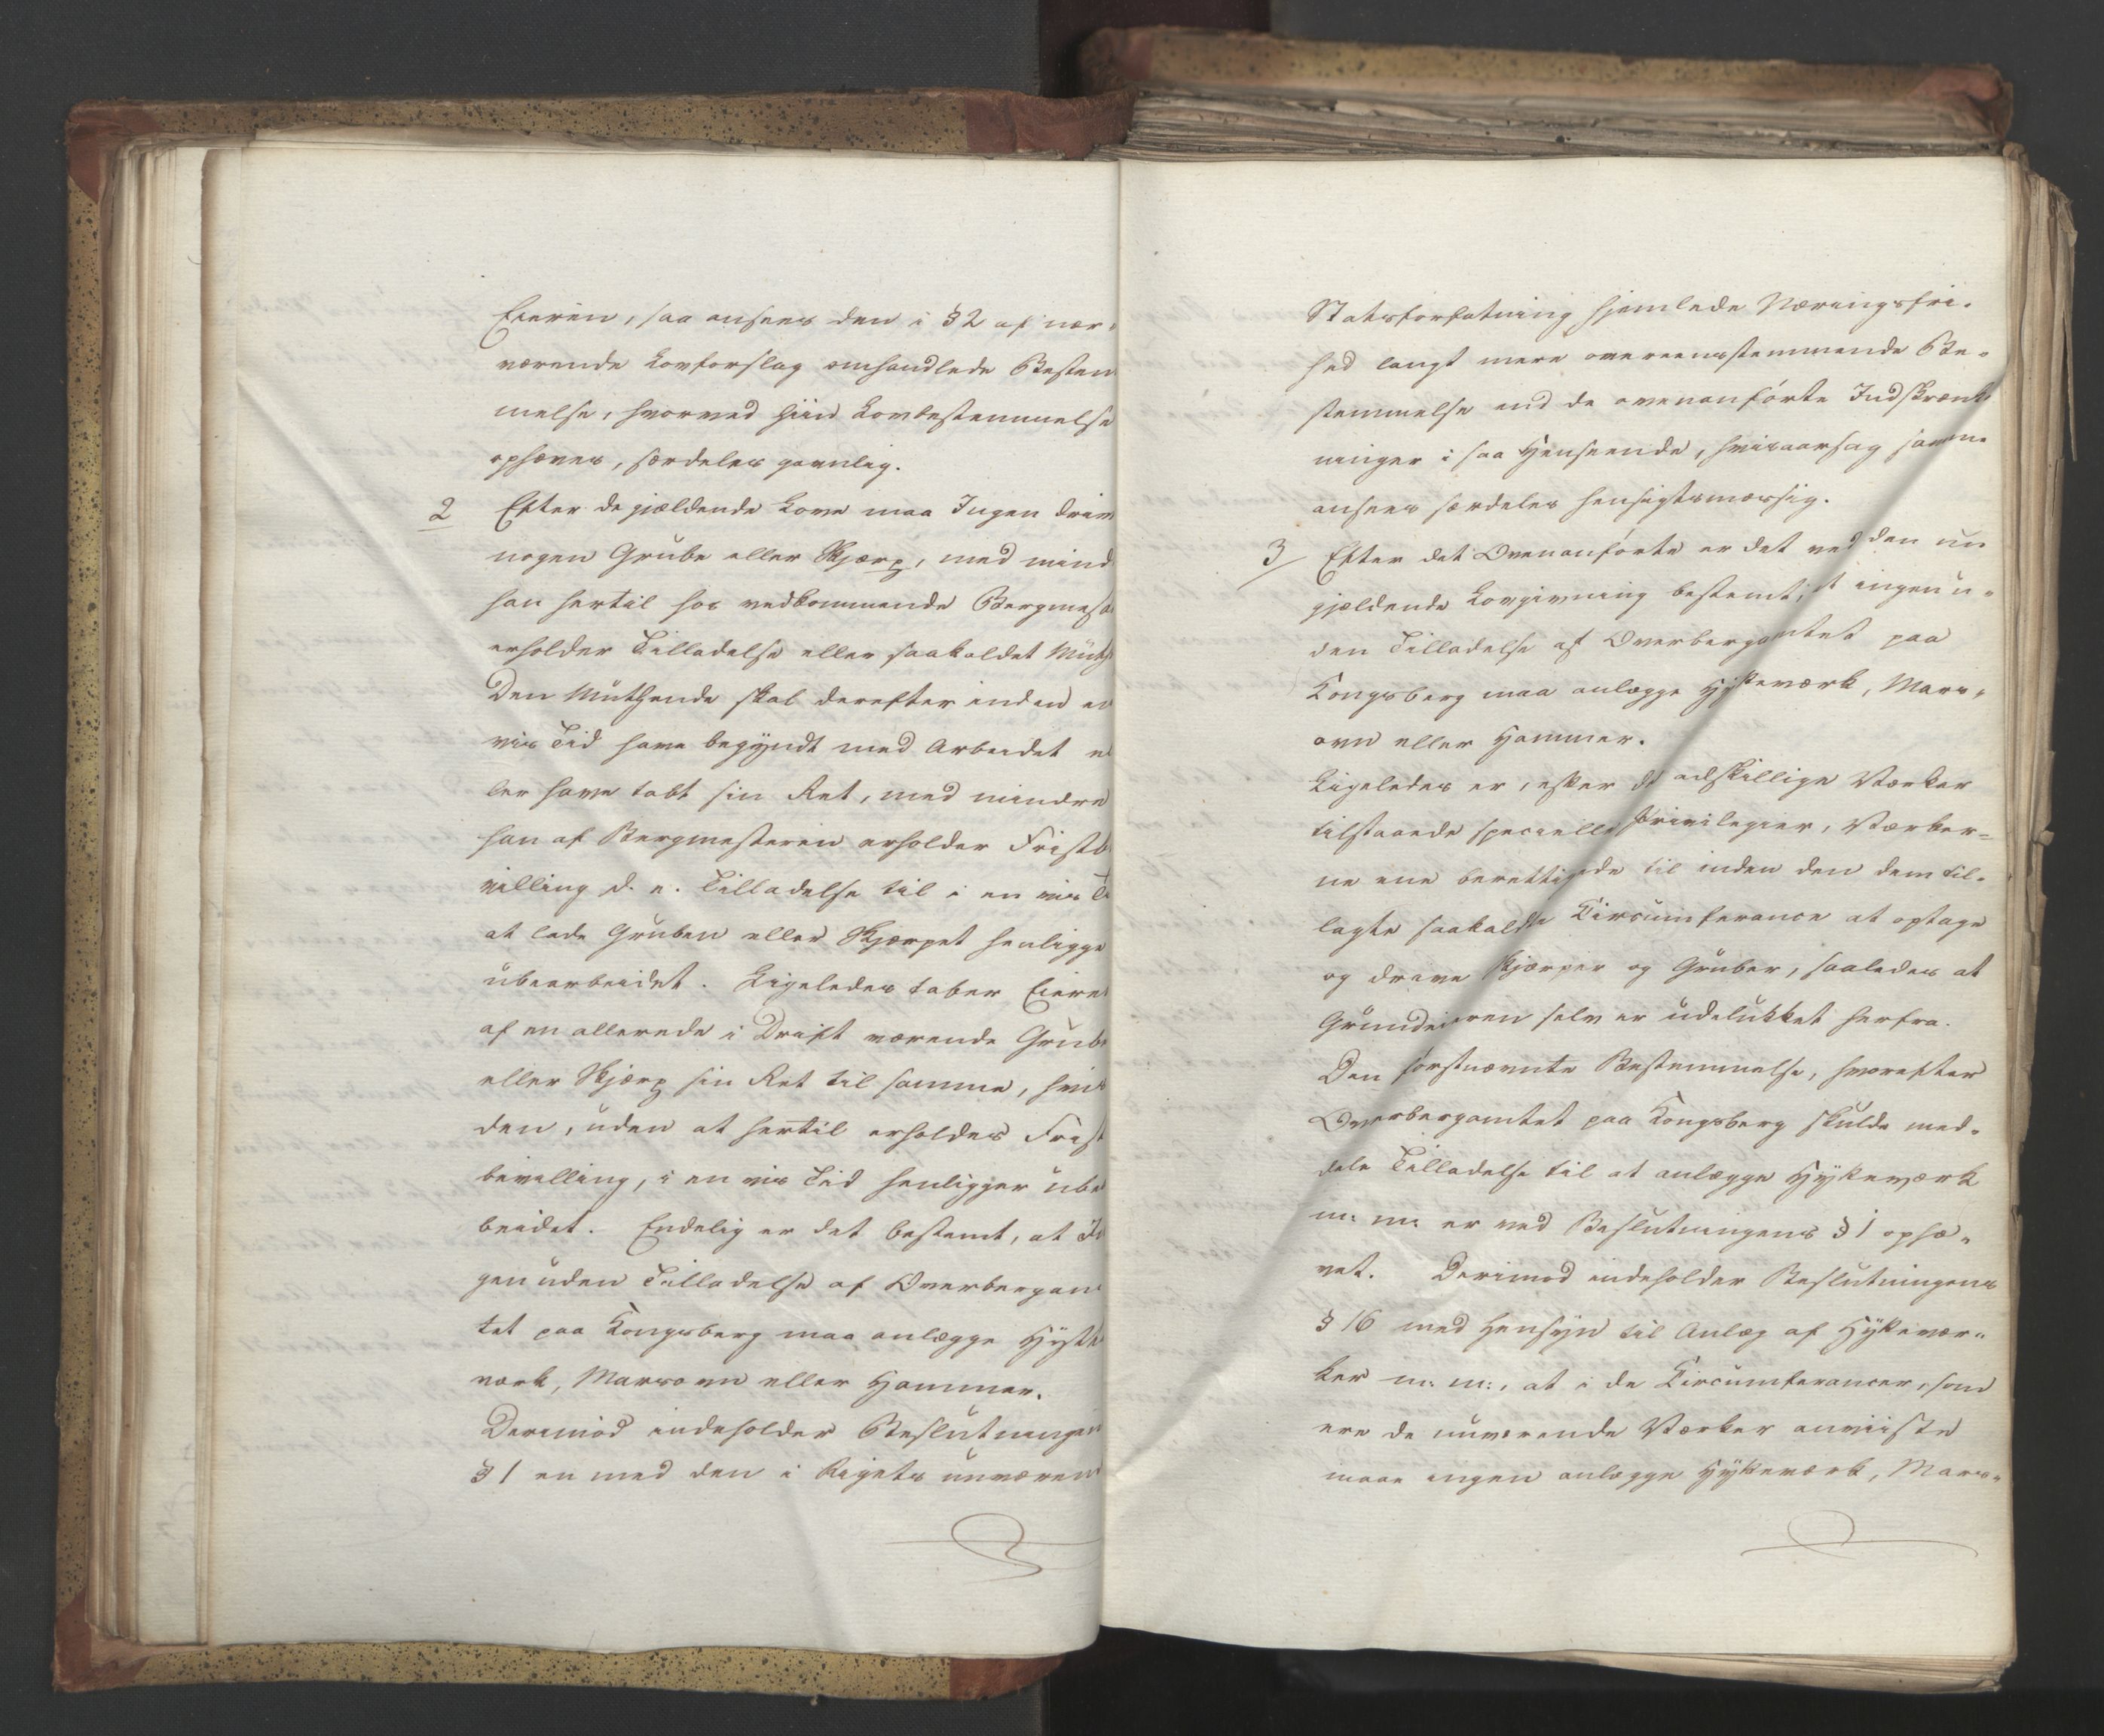 Eieren, saa ansees den i § 2 af nær-
værende Lovforslag omhandlede Bestem
melse, hvorved hiin Lovbestemmelse
ophæves, særdeles gavnlig.
2 Efter de gjældende Love maa Ingen driv
nogen Grube eller Skjærp, med mind
han hertil hos vedkommende Bergmest
erholder Tilladelse eller saakaldet Muth
Den Muthende skal derefter inden en
vis Tid have begyndt med Arbeidet el
ler have tabt sin Ret, med mindre
han af Bergmesteren erholder Fristb
villing d. e. Tilladelse til i en vis Ti
at lade Gruben eller Skjærpet henligge
ubearbeidet. Ligeledes taber Eieren
af en allerede i Drift værende Grube
eller Skjærp sin Ret til samme, hvis
den, uden at hertil erholdes Frist
bevilling, i en vis Tid henligger ube
beidet. Endelig er det bestemt, at In
gen uden Tilladelse af Overbergam
tet paa Kongsberg maa anlægge Hytte
værk, Marsovn eller Hammer.
Derimod indeholder Beslutningen
§ 1 en med den i Rigets nuværend
Statsforfatning hjemlede Næringsfri-
hed langt mere overeensstemmende Be-
stemmelse end de ovenanførte Indskrænk
ninger i saa Henseende, hvisaarsag samme
ansees særdeles hensigtsmæssig.
3 Efter det Ovenanførte er det ved den nu
gjældende Lovgivning bestemt, at ingen u-
den Tilladelse af Overbergamtet paa
Kongsberg maa anlægge Hytteværk, Mars-
ovn eller Hammer.
Ligeledes er, efter de adskillige Værker
tilstaaede specielle Privilegier, Værker-
ne ene berettigede til inden den dem til-
lagte saakaldte Circumferance at optage
og drive Skjærper og Gruber, saaledes at
Grundeieren selv er udelukket herfra.
Den førstnævnte Bestemmelse, hvorefter
Overbergamtet paa Kongsberg skulde med-
dele Tilladelse til at anlægge Hytteværk
m: m: er ved Beslutningens § 1 ophæ-
vet. Derimod indeholder Beslutningens
§ 16 med Hensyn til Anlæg af Hyttevær-
ker m: m:, at i de Circumferancer, som
ere de nuværende Værker anviiste
maae ingen anlægge Hytteværk, Mars-